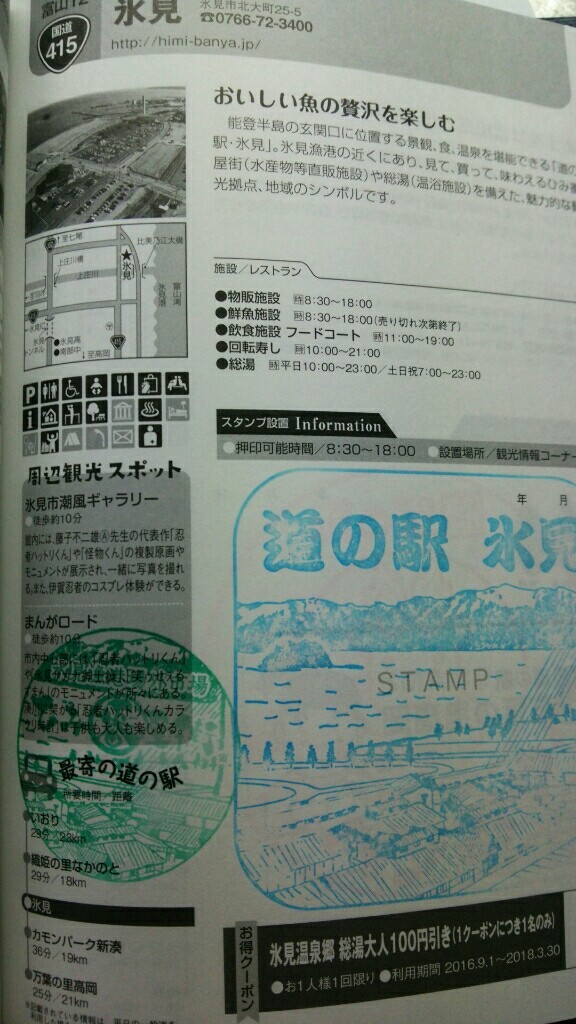 富山12
氷見
氷見市北大町25-5
☎0766-72-3400
国道
415
http://himi-banya.jp/
おいしい魚の贅沢を楽しむ
能登半島の玄関口に位置する景観、食、温泉を堪能できる「道の
駅・氷見」。氷見漁港の近くにあり、見て、買って、味わえるひみ番
屋街(水産物等直販施設)や総湯(温浴施設)を備えた、魅力的な観
光拠点、地域のシンボルです。
至七尾
比美乃江大橋
上庄川橋
上庄川
★氷見
富山湾
氷見港
氷見高
南部中
至高岡
施設/レストラン
●物販施設 時8:30~18:00
●鮮魚施設 時8:30~18:00(売り切れ次第終了)
●飲食施設 フードコート 時11:00~19:00
●回転寿し 時10:00~21:00
●総湯 時平日10:00~23:00/土日祝7:00~23:00
スタンプ設置 Information
●押印可能時間/8:30~18:00 ●設置場所/観光情報コーナー
年 月
道の駅 氷見
STAMP
周辺観光スポット
氷見市潮風ギャラリー
●徒歩約10分
館内には、藤子不二雄Ⓐ先生の代表作「忍
者ハットリくん」や「怪物くん」の複製原画や
モニュメントが展示され、一緒に写真を撮れ
る。また、伊賀忍者のコスプレ体験ができる。
まんがロード
●徒歩約10分
市内中心部には「忍者ハットリくん」
のモニュメントが所々にある。
「忍者ハットリくんカラ
クリ時計」は子供も大人も楽しめる。
最寄の道の駅
所要時間/距離
いおり
29分/23km
織姫の里なかのと
29分/18km
氷見
カモンパーク新湊
36分/19km
万葉の里高岡
25分/21km
お得クーポン
氷見温泉郷 総湯大人100円引き(1クーポンにつき1名のみ)
●お1人様1回限り ●利用期間 2016.9.1~2018.3.30